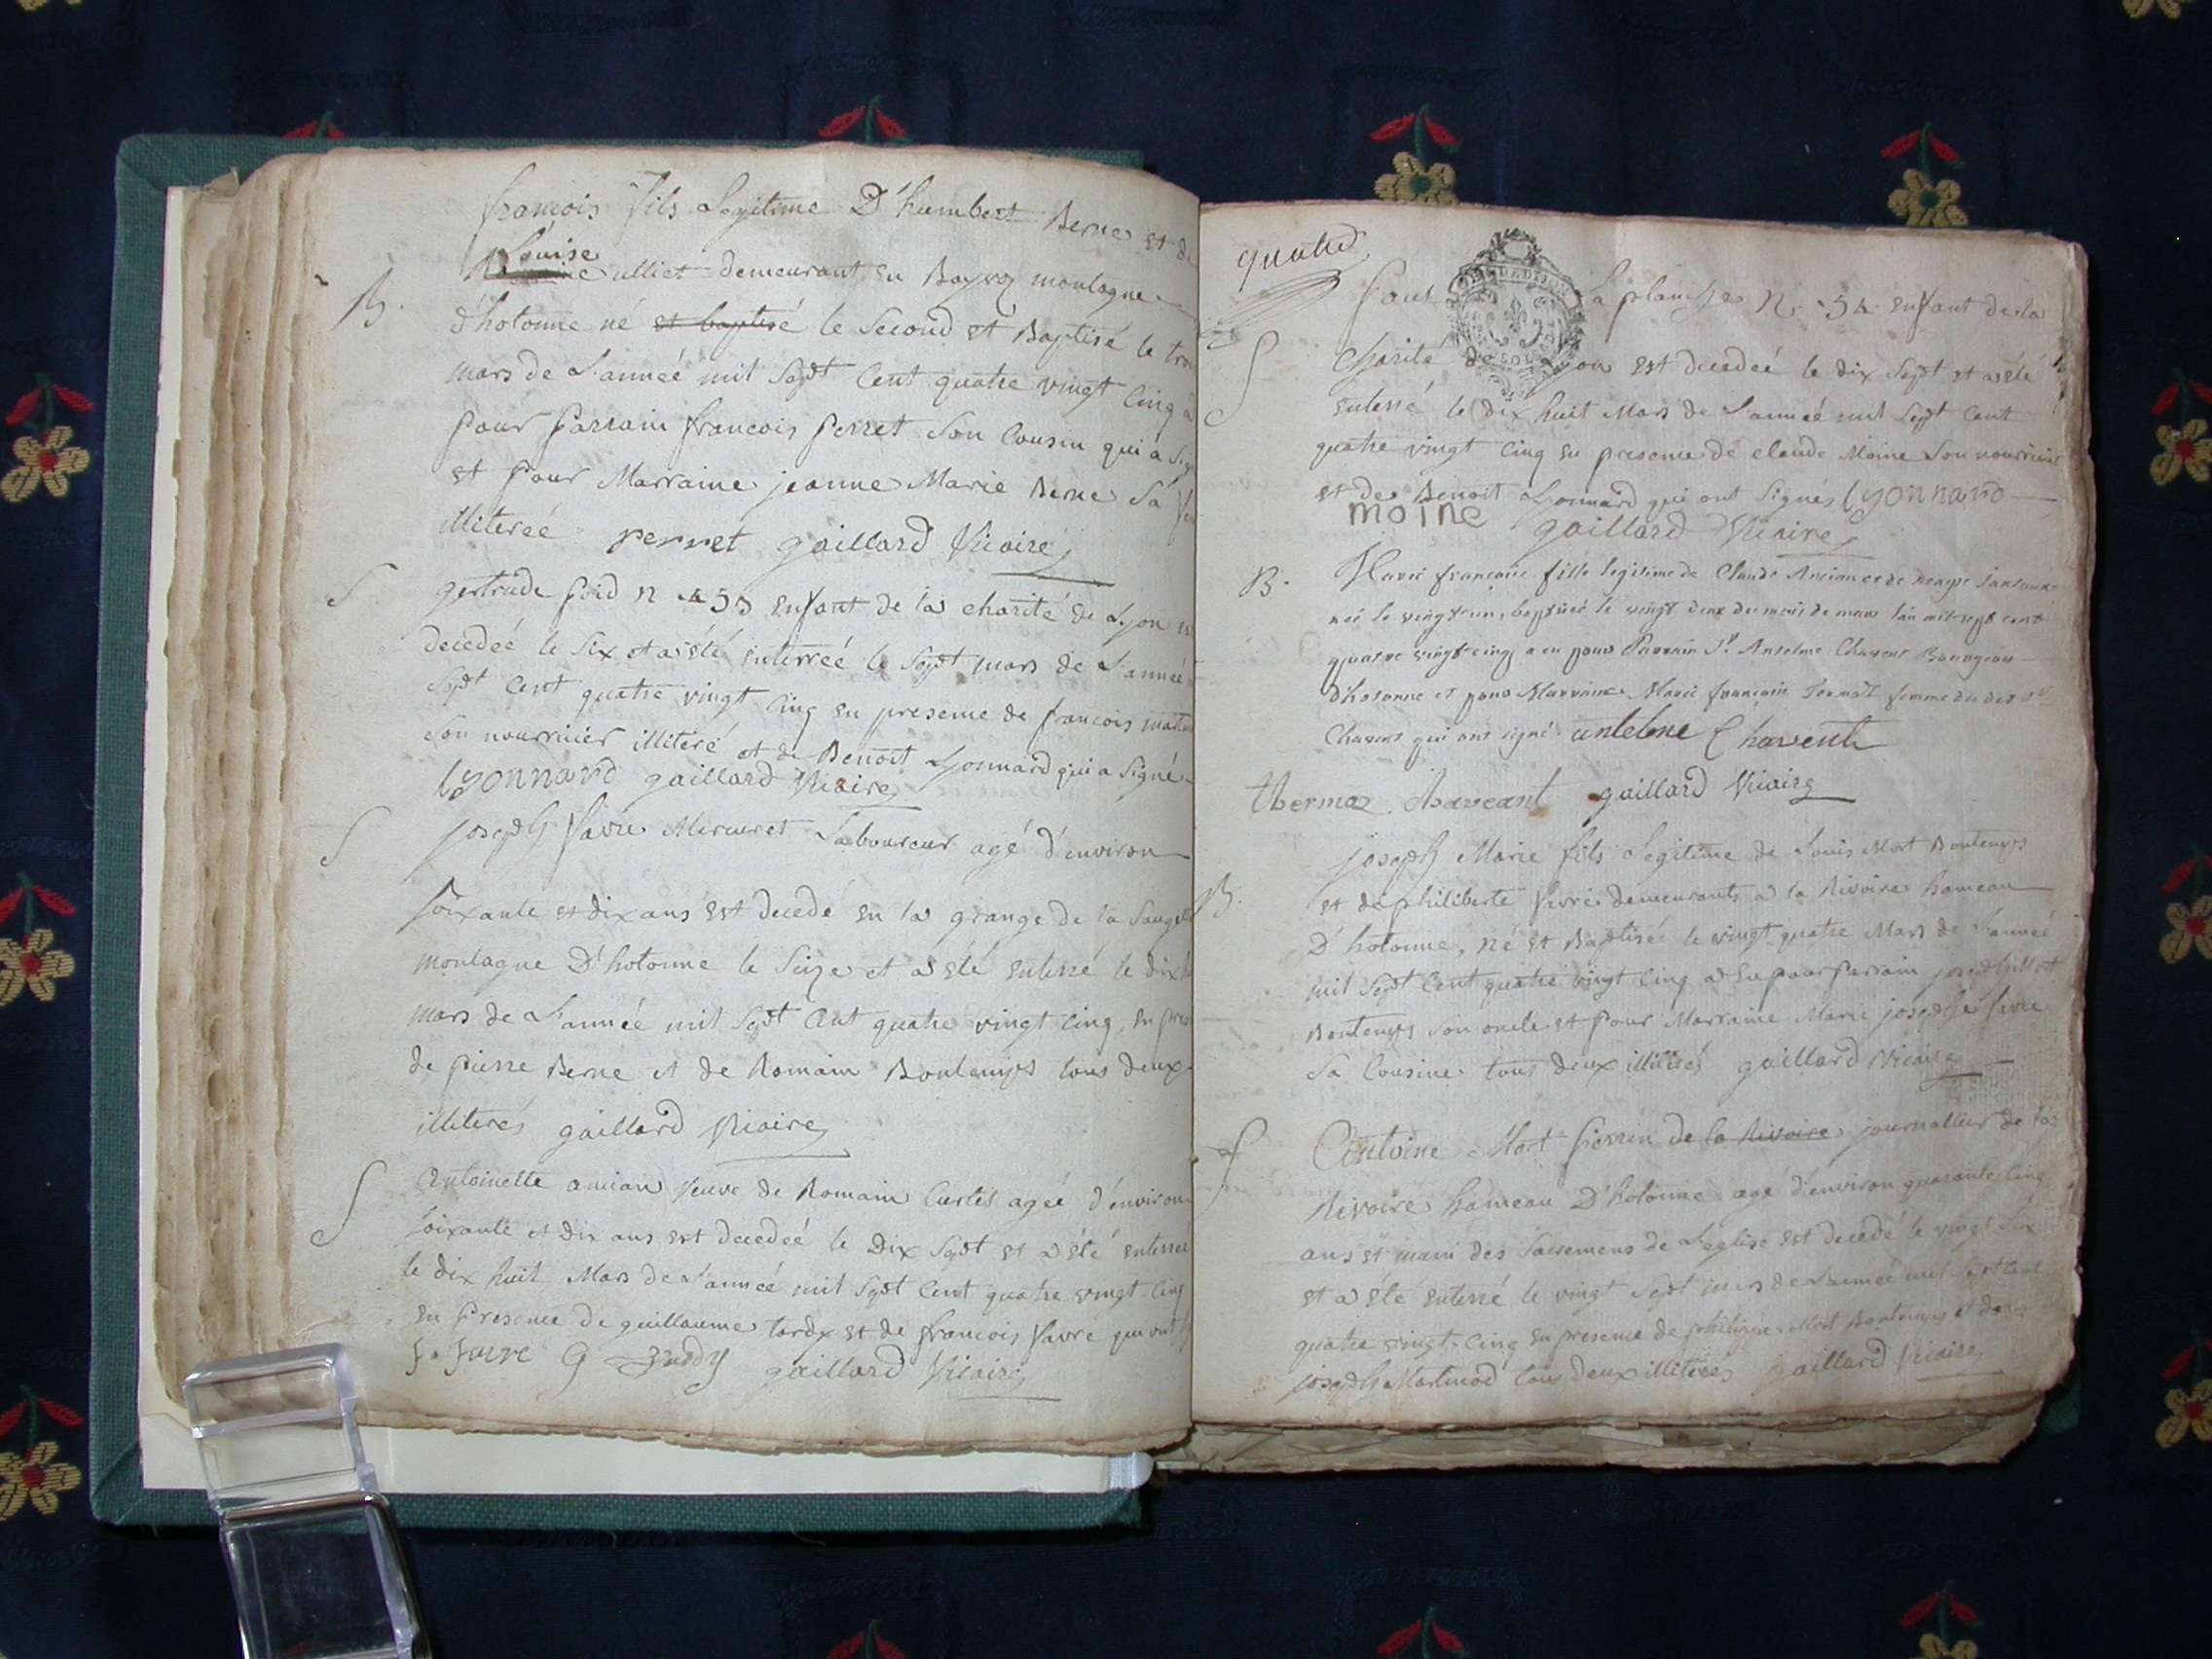 françois fils Legitime D'humbert Berne et de
Louise
ulliet demeurant en montagne
B.
d'hotonne né et baptisé le Second et Baptisé le
mars de L'année mil Sept Cent quatre vingt Cinq a
pour parrain francois perret Son Cousin qui a
et pour Marraine jeanne Marie Berne Sa
illitereé perret gaillard Vicaire
S
gertrude n enfant de la charité de Lyon
decedeé le Six et a été enterreé le Sept mars de L'année
Sept Cent quatre vingt Cinq en presence de francois
son nourricier illiteré et de Benoit Lyonnard qui a Signé
lyonnard gaillard Vicaire
S
joseph favre Mercuret Laboureur agé d'environ
Soixante et dix ans est decedé en la grange de la
montagne D'hotonne le Seize et a été enterré le dix
mars de L'année mil Sept Cent quatre vingt Cinq, en
de pierre Berne et de Romain Bontemps tous deux
illiterés gaillard Vicaire
S
Antoinette veuve de Romain Curtet ageé d'environ
soixante et dix ans est decedeé le Dix Sept et a été enterreé
le dix huit Mars de L'année mil Sept Cent quatre vingt Cinq
en presence de guillaume tardy et de francois favre qui ont
f. favre G tardy gaillard Vicaire
quatre
La planche n. 54 enfant de la
S
Charité de Lyon est decedeé le dix Sept et a été
enterré le dix huit Mars de L'année mil Sept Cent
quatre vingt Cinq en presence de claude Moine Son nourricier
et de Benoit Lyonnard qui ont Signés lyonnard
moine gaillard Vicaire
B.
Marie françoise fille legitime de Claude Ancian et de
neé le vingt-un, baptiseé le vingt deux du mois de mars l'an mil sept cent
quatre vingt cinq a eu pour Parrain Sr. Antelme Chavent Bourgeois
d'hotonne et pour Marraine Marie françoise femme du dit Sr
Chavent qui ont signé antelme Chavent
thermoz chaveant gaillard Vicaire
B.
joseph Marie fils Legitime de Louis Mort Bontemps
et de philiberte favre demeurants a la Rivoire hameau
D'hotonne, né et Baptisé le vingt quatre Mars de L'année
mil Sept Cent quatre vingt Cinq a eu pour parrain joseph Mort
Bontemps Son oncle et pour Marraine Marie josephe favre
Sa Cousine tous deux illiterés gaillard Vicaire
S
Antoine Mort perrin de la Rivoire journallier de la
Rivoire hameau D'hotonne agé d'environ quarante Cinq
ans et muni des Sacremens de L'eglise est decedé le vingt Six
et a été enterré le vingt Sept mars de L'année mil Sept Cent
quatre vingt-Cinq en presence de philippe Mort Bontemps et de
joseph Martinod tous deux illiterés gaillard Vicaire